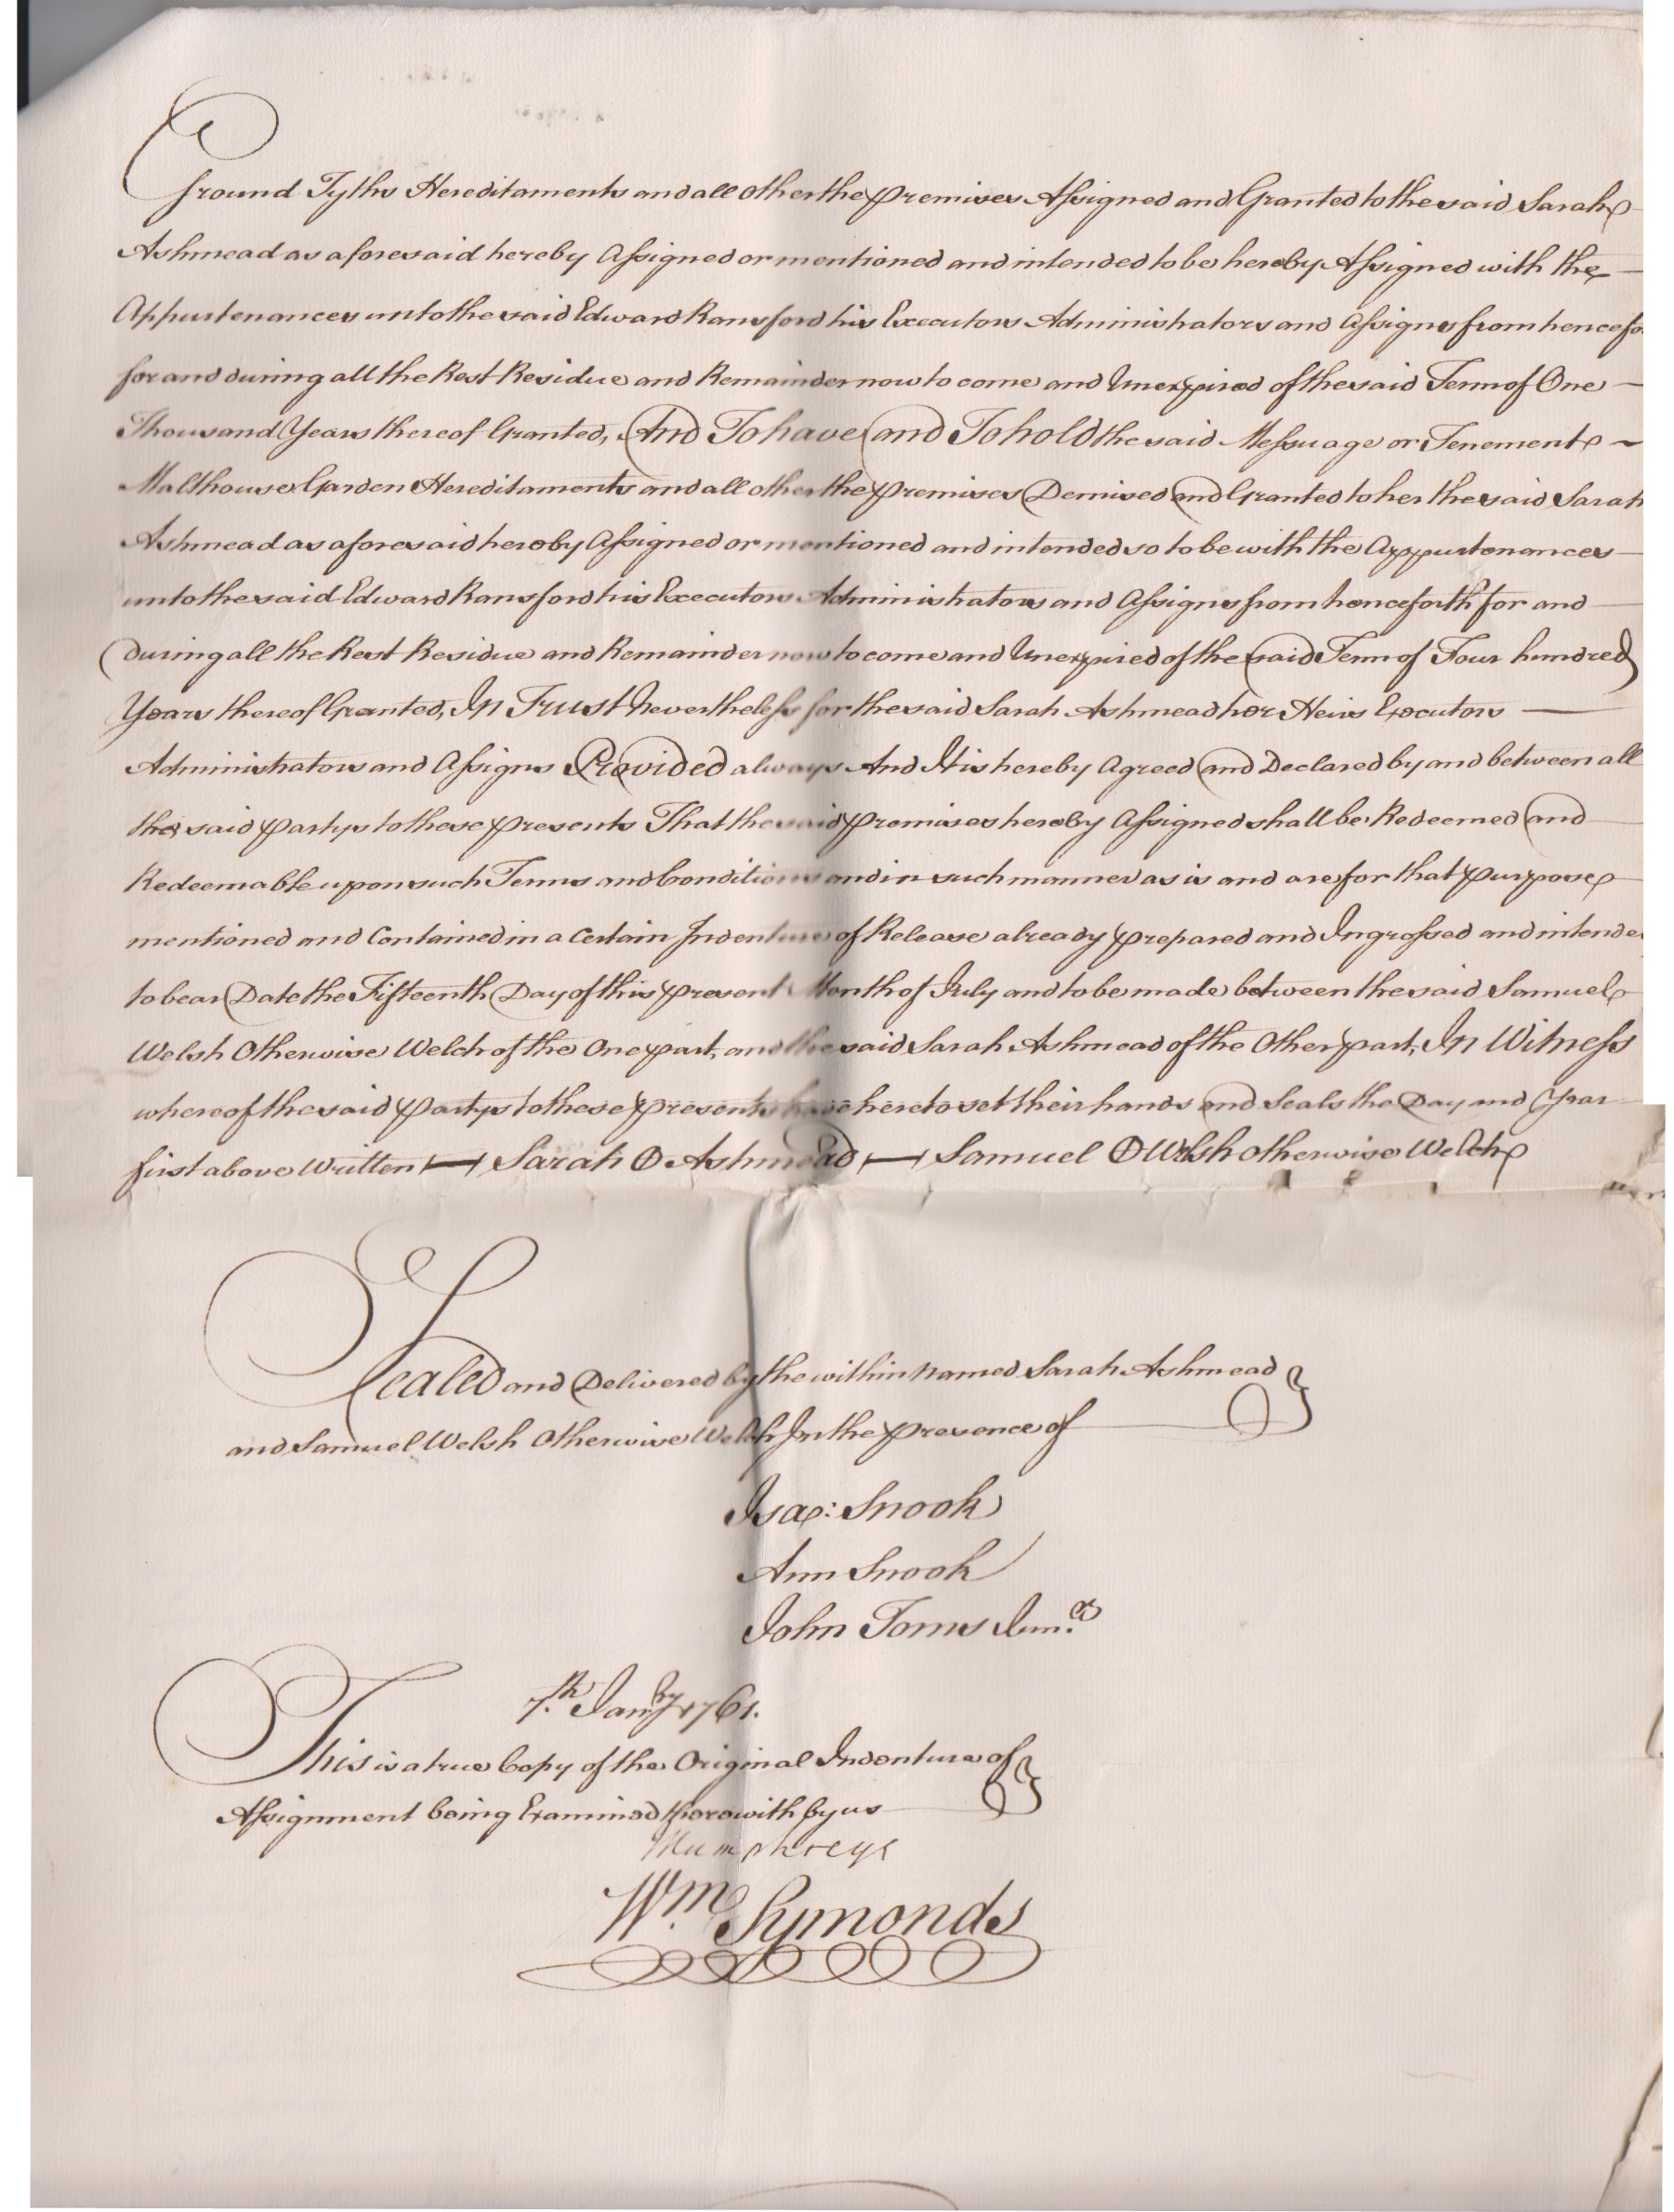 Ground Tyths Hereditaments and all other the premises Assigned and Granted to the said Sarah
Ashmead as aforesaid hereby Assigned or mentioned and intended to be hereby Assigned with the
Appurtenances unto the said Edward Ransford his Executors Administrators and Assigns from hencefo
for and during all the Rest Residue and Remainder now to come and Unexpired of the said Term of One
Thousand Years thereof Granted, And To have and To hold the said Messuage or Tenement
Malthouse Garden Hereditaments and all other the premises Demised and Granted to her the said Sarah
Ashmead as aforesaid hereby Assigned or mentioned and intended so to be with the Appurtenances
unto the said Edward Ransford his Executors Administrators and Assigns from henceforth for and
During all the Rest Residue and Remainder now to come and Unexpired of the said Term of Four hundred
Years thereof Granted, In Trust Nevertheless for the said Sarah Ashmead her Heirs Executors
Administrators and Assigns Provided always And It is hereby Agreed and Declared by and between all
the said partys to these presents That the said premises hereby Assigned shall be Redeemed and
Redeemable upon such Terms and Conditions and in such manner as is and are for that purpose
mentioned and Contained in a Certain Indenture of Release already prepared and Ingrossed and intende
to bear Date the Fifteenth Day of this present Month of July and to be made between the said Samuel
Welsh Otherwise Welch of the One part, and the said Sarah Ashmead of the Other part, In Witness
whereof the said partys to these presents have hereto set their hands and Seals the Day and Year
first above Written Sarah O Ashmead Samuel O Welsh otherwise Welch
Sealed and Delivered by the within named Sarah Ashmead
and Samuel Welsh Otherwise Welch In the presence of
Isac: Snook
Ann Snook
John Toms Junr.
7.th Janry 1761.
This is a true Copy of the Original Indenture of
Assignment being Examined therewith by us
Humphreys
Wm. Symonds